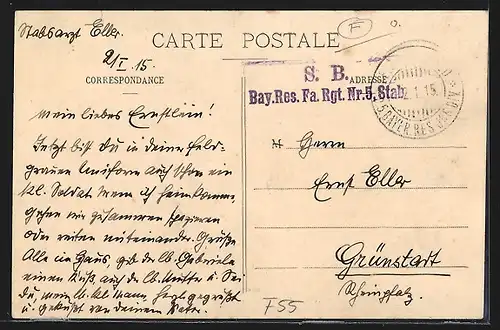 Stabsarzt Eller.
2/I. 15.
CARTE POSTALE
F
S. B.
Bay.Res. Fa. Rgt. Nr.5, Stab
CORRESPONDANCE
ADRESSE
2.1.15.
5 BAYER. RES. DIV.
Mein liebes Ernstlein!
Jetzt bist du in deiner Feld-
grauen Uniform auch schon ein
kl. Soldat. Wenn ich heimkomme,
gehen wir zusammen spazieren
oder reiten miteinander. Grüße
Alle im Haus, gib der lb. Gabriele
einen Kuß, auch der lb. Mutter u. sei
du, mein lb. kl. Mann, herzl. gegrüßt
u. geküßt von deinem Vater.
M Herrn
Ernst Eller
Grünstadt
Rheinpfalz.
F55